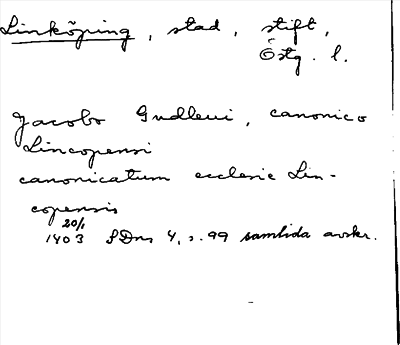 Linköping, stad, stift,
Östg. l.
Jacobo Gudlevi, canonico
Lincopensi
canonicatum ecclesie Lin-
copensis
20/1
1403 SDns 4, s. 99 samtida avskr.